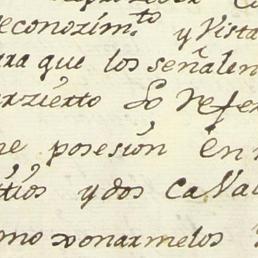 econozim.to y Vista
ra que los señalen
arzierto Lo refer
e posesion En
tios y dos Cava
mo donarmelos